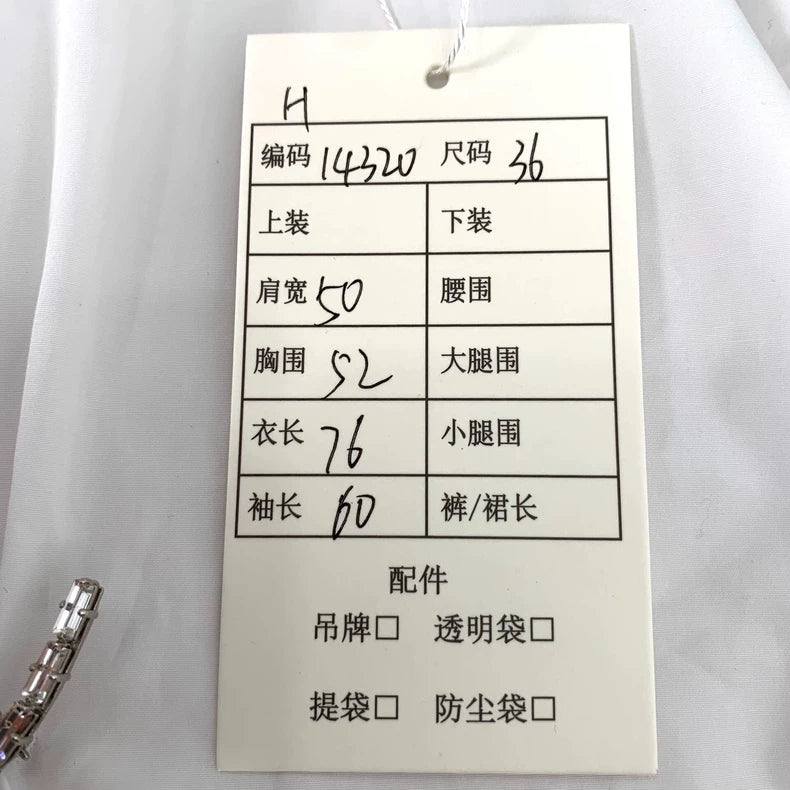 H
编码 14320 尺码 36
上装 下装
肩宽 50 腰围
胸围 52 大腿围
衣长 76 小腿围
袖长 60 裤/裙长
配件
吊牌□ 透明袋□
提袋□ 防尘袋□